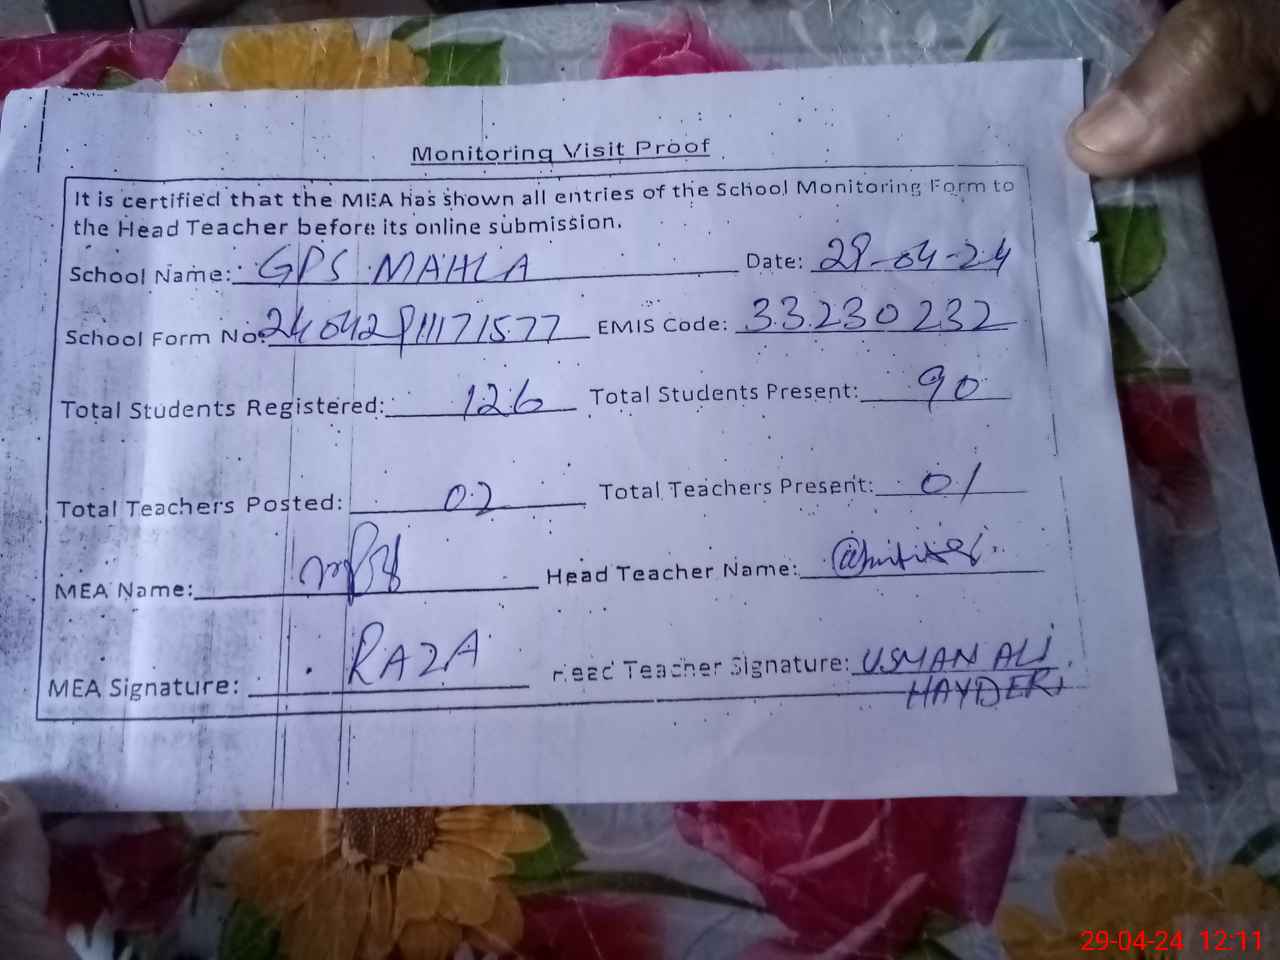 Monitoring Visit Proof
It is certified that the MEA has shown all entries of the School Monitoring Form to
the Head Teacher before its online submission.
School Name: GPS MAHLA Date: 29-04-24
School Form No: 24042911171577 EMIS Code: 33230232
Total Students Registered: 126 Total Students Present: 90
Total Teachers Posted: 02 Total Teachers Present: 01
MEA Name: Head Teacher Name:
MEA Signature: RAZA Head Teacher Signature: USMAN ALI
HAYDER
29-04-24 12:11